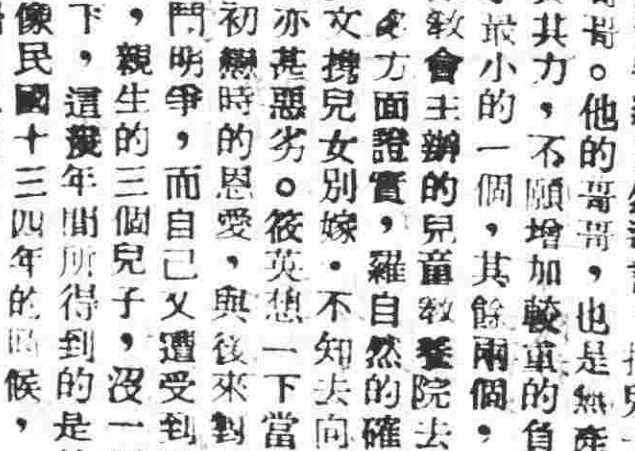 哥。他的哥哥，也是無產
其力，不願增加較重的負
最小的一個，其餘兩個，
教會主辦的兒童教養院去
方面證實，羅自然的確
文攜兒女別嫁。不知去向
亦甚惡劣。筱英想一下當
初戀時的恩愛，與後來對
鬥明爭，而自己又遭受到
，親生的三個兒子，沒一
下，這幾年間所得到的是
像民國十三四年的時候，